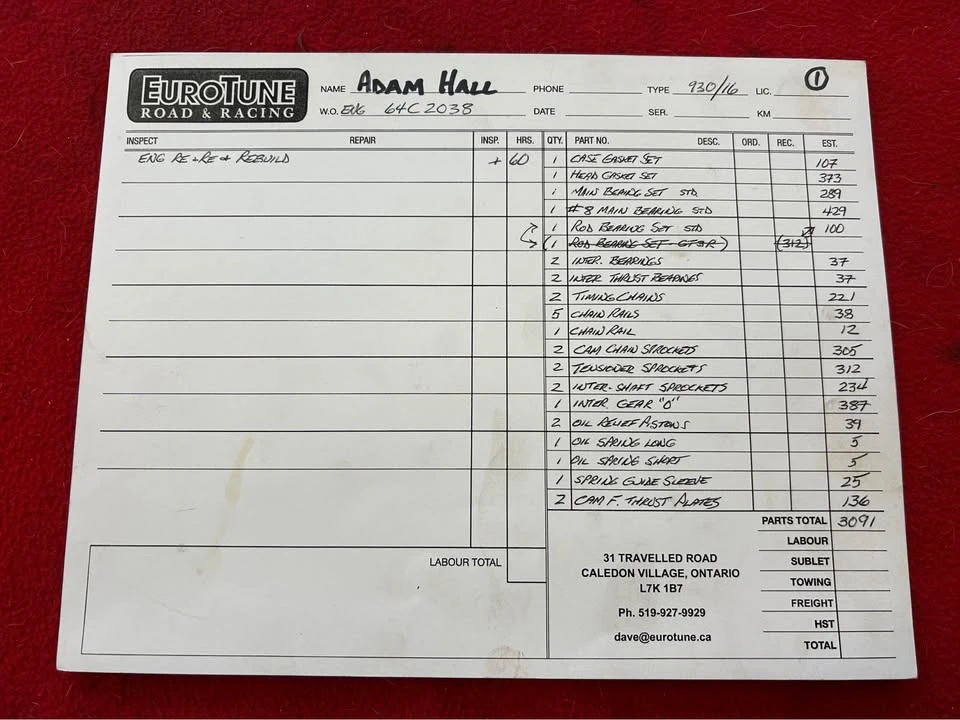 EUROTUNE
ROAD & RACING
NAME ADAM HALL PHONE TYPE 930/16 LIC. ①
W.O. ENG 64C2038 DATE SER. KM
INSPECT REPAIR INSP. HRS. QTY. PART NO. DESC. ORD. REC. EST.
ENG RE & RE & REBUILD + 60 1 CASE GASKET SET 107
1 HEAD GASKET SET 373
1 MAIN BEARING SET STD 289
1 #8 MAIN BEARING STD 429
1 ROD BEARING SET STD 100
(1 ROD BEARING SET - GT3R) (312)
2 INTER. BEARINGS 37
2 INTER THRUST BEARINGS 37
2 TIMING CHAINS 221
5 CHAIN RAILS 38
1 CHAIN RAIL 12
2 CAM CHAIN SPROCKETS 305
2 TENSIONER SPROCKETS 312
2 INTER-SHAFT SPROCKETS 234
1 INTER. GEAR "0" 387
2 OIL RELIEF PISTONS 39
1 OIL SPRING LONG 5
1 OIL SPRING SHORT 5
1 SPRING GUIDE SLEEVE 25
2 CAM F. THRUST PLATES 136
PARTS TOTAL 3091
LABOUR
LABOUR TOTAL 31 TRAVELLED ROAD SUBLET
CALEDON VILLAGE, ONTARIO TOWING
L7K 1B7
FREIGHT
Ph. 519-927-9929
HST
dave@eurotune.ca TOTAL